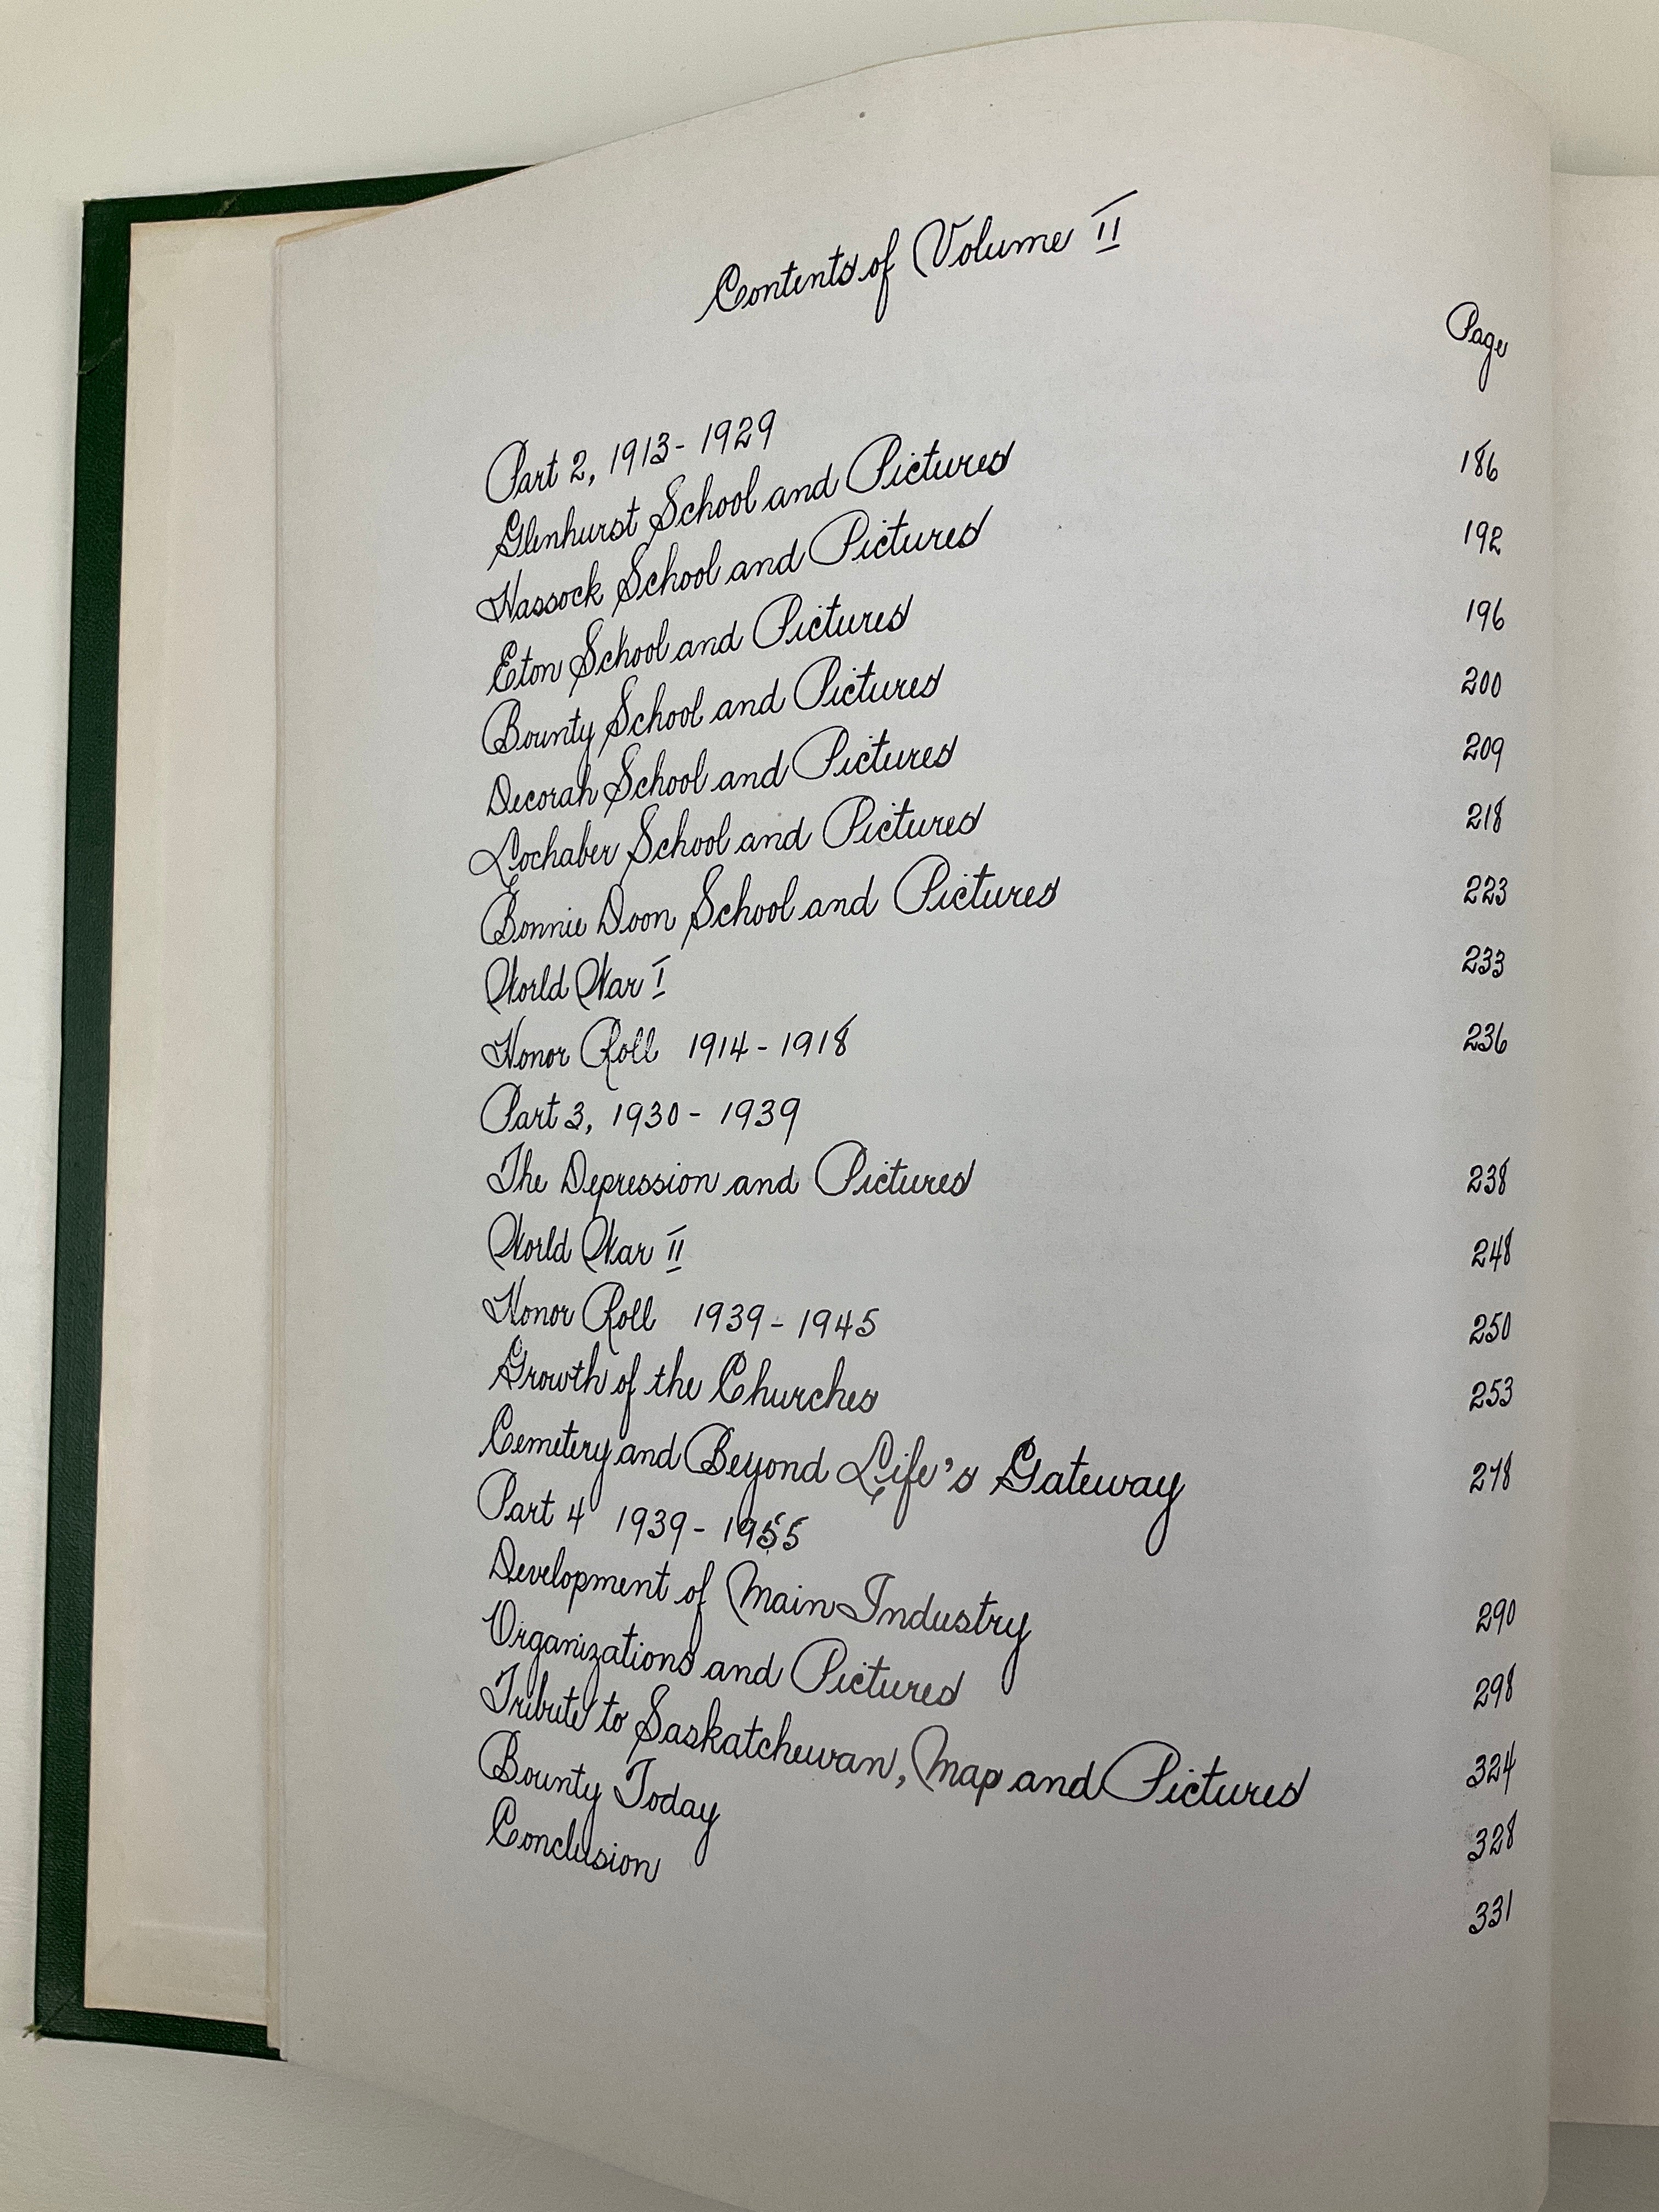 Contents of Volume II
Page
Part 2, 1913 - 1929
Glenhurst School and Pictures 186
Hassock School and Pictures 192
Eton School and Pictures 196
Bounty School and Pictures 200
Decorah School and Pictures 209
Lochaber School and Pictures 218
Bonnie Doon School and Pictures 223
World War I 233
Honor Roll 1914 - 1918 236
Part 3, 1930 - 1939
The Depression and Pictures 238
World War II 248
Honor Roll 1939 - 1945 250
Growth of the Churches 253
Cemetery and Beyond Life's Gateway 278
Part 4 1939 - 1955
Development of Main Industry 290
Organizations and Pictures 298
Tribute to Saskatchewan, Map and Pictures 324
Bounty Today 328
Conclusion 331